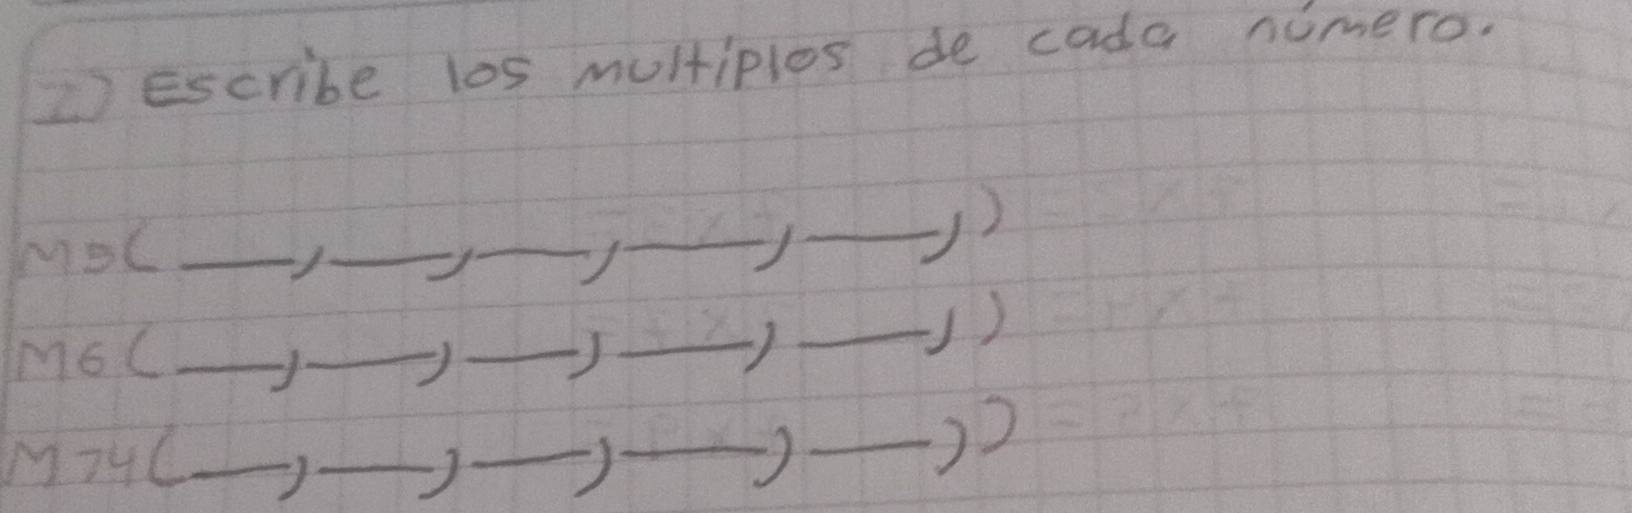 2) Escribe los multiplos de cada número.
M9( __, __, __, __, __, )
M6( __, __, __, __, __, )
M74( __, __, __, __, __, )